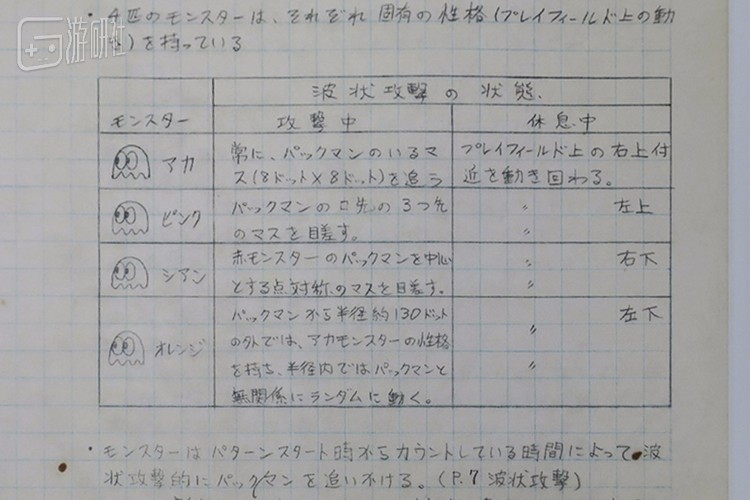 游研社
・4匹のモンスターは、それぞれ固有の性格(プレイフィールド上の動
き)を持っている
波状攻撃の状態.
モンスター 攻撃中 休息中
アカ 常に、パックマンのいるマ プレイフィールド上の右上付
ス(8ドット×8ドット)を追う 近を動き回わる。
ピンク パックマンの口先の3つ先 〃 左上
のマスを目差す。 〃
シアン 赤モンスターのパックマンを中心 〃 右下
とする点対称のマスを目差す。 〃
パックマンから半径約130ドット 〃 左下
オレンジ の外では、アカモンスターの性格
を持ち、半径内ではパックマンと 〃
無関係にランダムに動く。
・モンスターはパターンスタート時からカウントしている時間によって、波
状攻撃的にパックマンを追いかける。(P.7 波状攻撃)